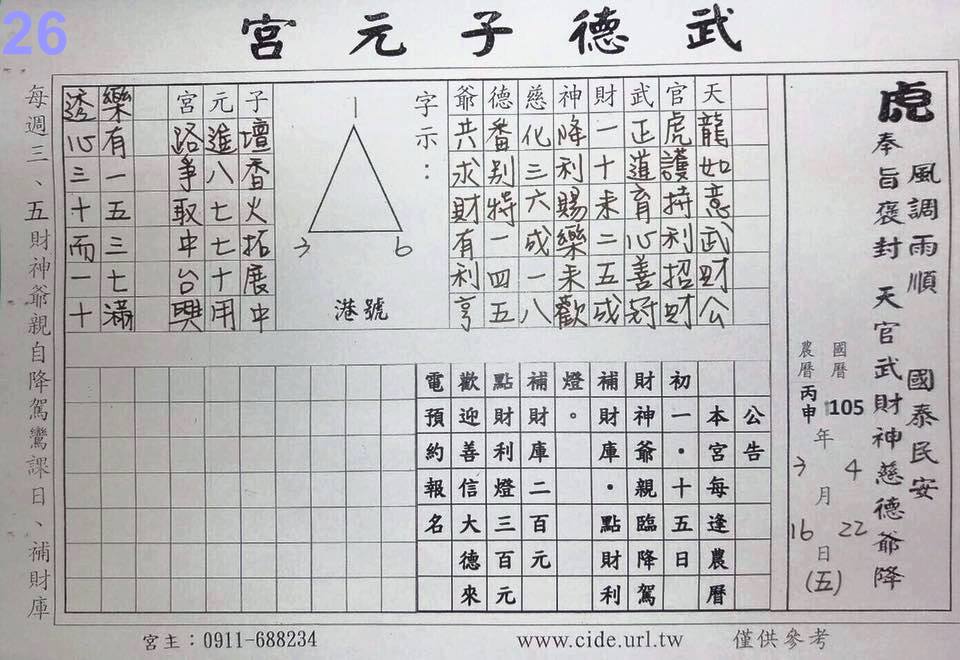 26
武德子元宮
虎
風調雨順　國泰民安
奉旨褒封　天官武財神慈德爺降
國曆 105 年 4 月 22 日 (五)
農曆 丙申 年 3 月 16 日
天龍如意武財公
官虎護持利招財
武正道育心善冠
財一十未二五成
神降利賜樂未歡
慈化三六成一八
德番別特一四五
爺共求財有利亨
字示：
1
3
6
港號
子壇香火拓展中
元進八七七十用
宮路爭取中台興
樂有一五三七滿
透心三十而一十
公告
本宮每逢農曆
初一・十五日
財神爺親臨降駕
補財庫・點財利
燈。
補財庫二百元
點財利燈三百元
歡迎善信大德來
電預約報名
每週三、五財神爺親自降駕鸞課日、補財庫
宮主：0911-688234
www.cide.url.tw
僅供參考